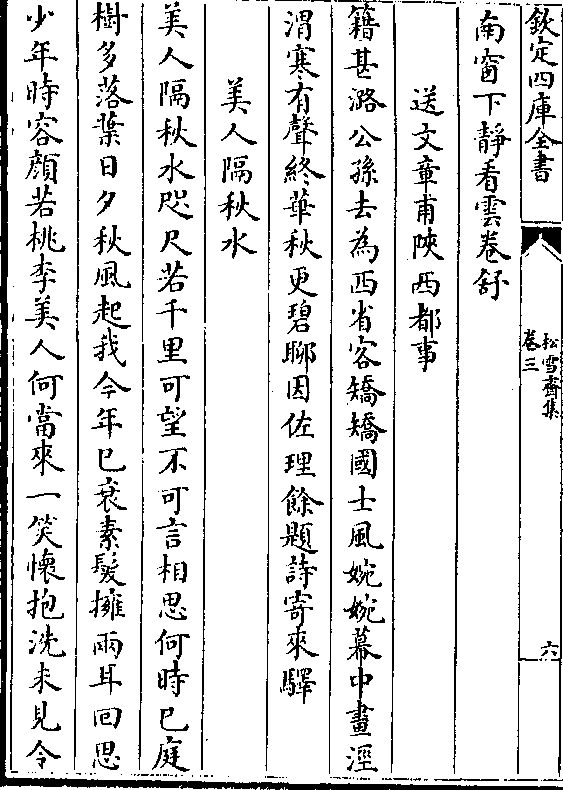 欽定四庫全書
松雪齋集
卷三
六
南窗下靜看雲卷舒
送文章甫陜西都事
籍甚潞公孫去為西省客矯矯國士風婉婉幕中畫涇
渭寒有聲終華秋更碧聊因佐理餘題詩寄來驛
美人隔秋水
美人隔秋水咫尺若千里可望不可言相思何時已庭
樹多落葉日夕秋風起我今年已衰素髮擁兩耳回思
少年時容顏若桃李美人何當來一笑懷抱洗未見令